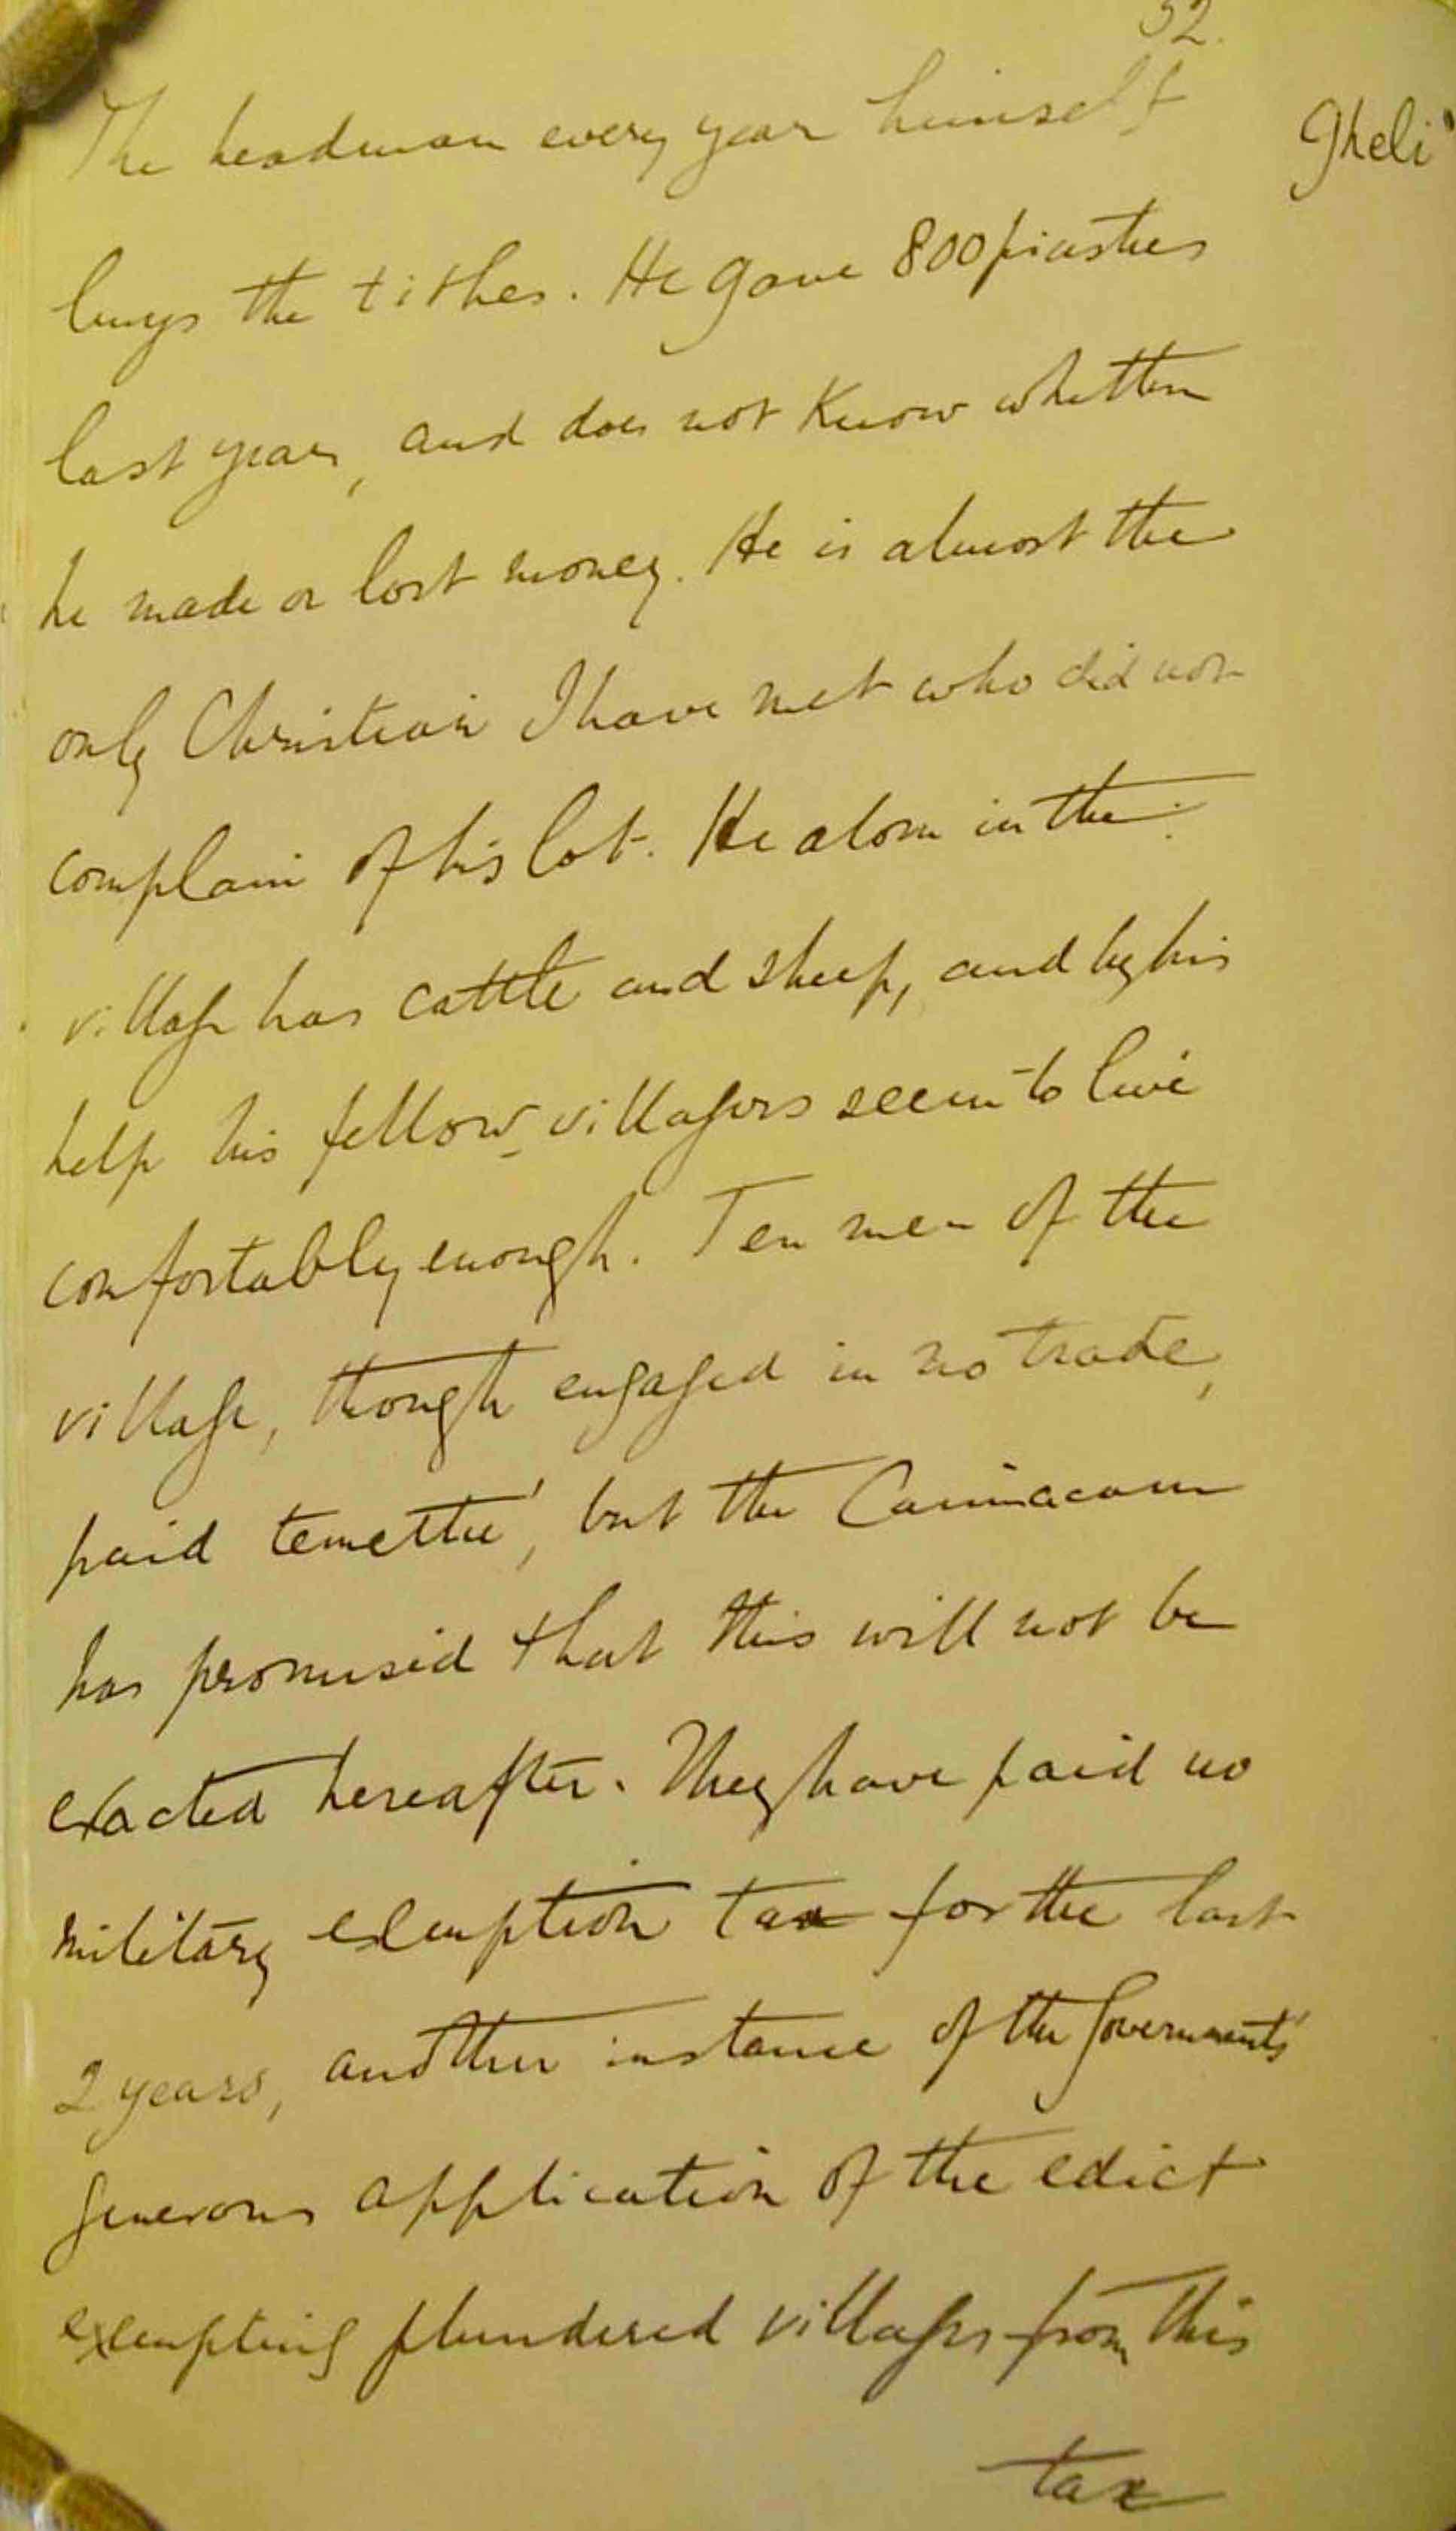 52.
Gheli
The headman every year himself
buys the tithes. He gave 800 piastres
last year, and does not know whether
he made or lost money. He is almost the
only Christian I have met who did not
complain of his lot. He alone in the
village has cattle and sheep, and by his
help his fellow-villagers seem to live
comfortably enough. Ten men of the
village, though engaged in no trade,
paid temettu', but the Caimacam
has promised that this will not be
exacted hereafter. They have paid no
military exemption tax for the last
2 years, another instance of the Governments'
generous application of the edict
exempting plundered villages from this
tax